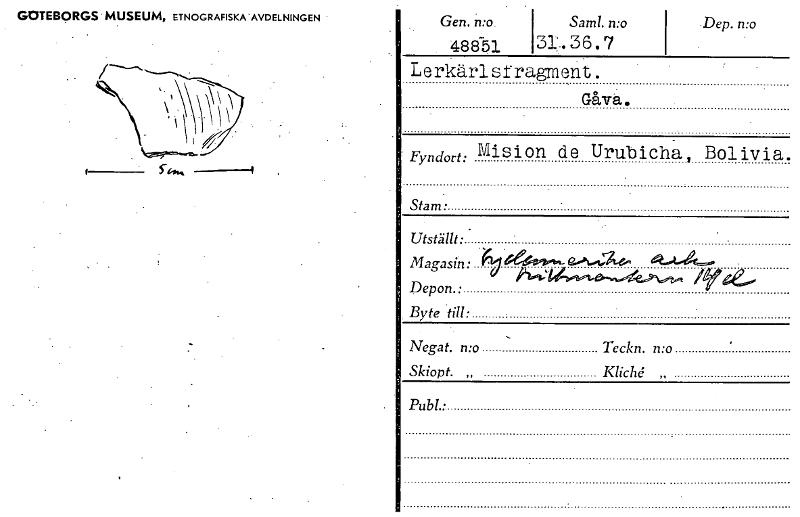 GÖTEBORGS MUSEUM, ETNOGRAFISKA AVDELNINGEN
5 cm
Gen. n:o Saml. n:o Dep. n:o
48851 31.36.7
Lerkärlsfragment.
Gåva.
Fyndort: Mision de Urubicha, Bolivia.
Stam:
Utställt:
Magasin: Sydamerika ark
Depon.:
Byte till:
Negat. n:o Teckn. n:o
Skiopt. „ Kliché „
Publ.: